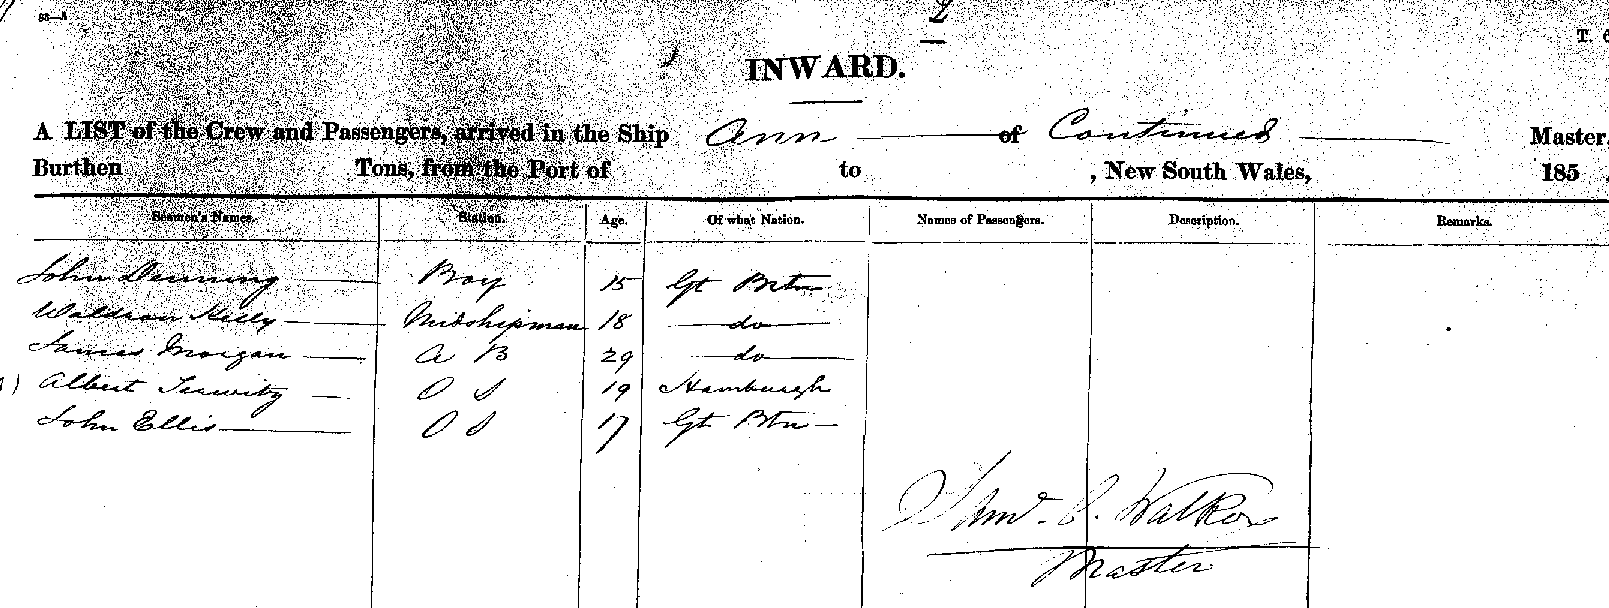 88—A
2
T. 6
INWARD.
A LIST of the Crew and Passengers, arrived in the Ship Ann of Continued Master,
Burthen Tons, from the Port of to , New South Wales, 185
Seamen's Names. Station. Age. Of what Nation. Names of Passengers. Description. Remarks.
John Denning Boy 15 Gt Brtn
Waldron Kelly Midshipman 18 do
James Morgan A B 29 do
Albert O S 19 Hamburgh
John Ellis O S 17 Gt Btn
Walker
Master